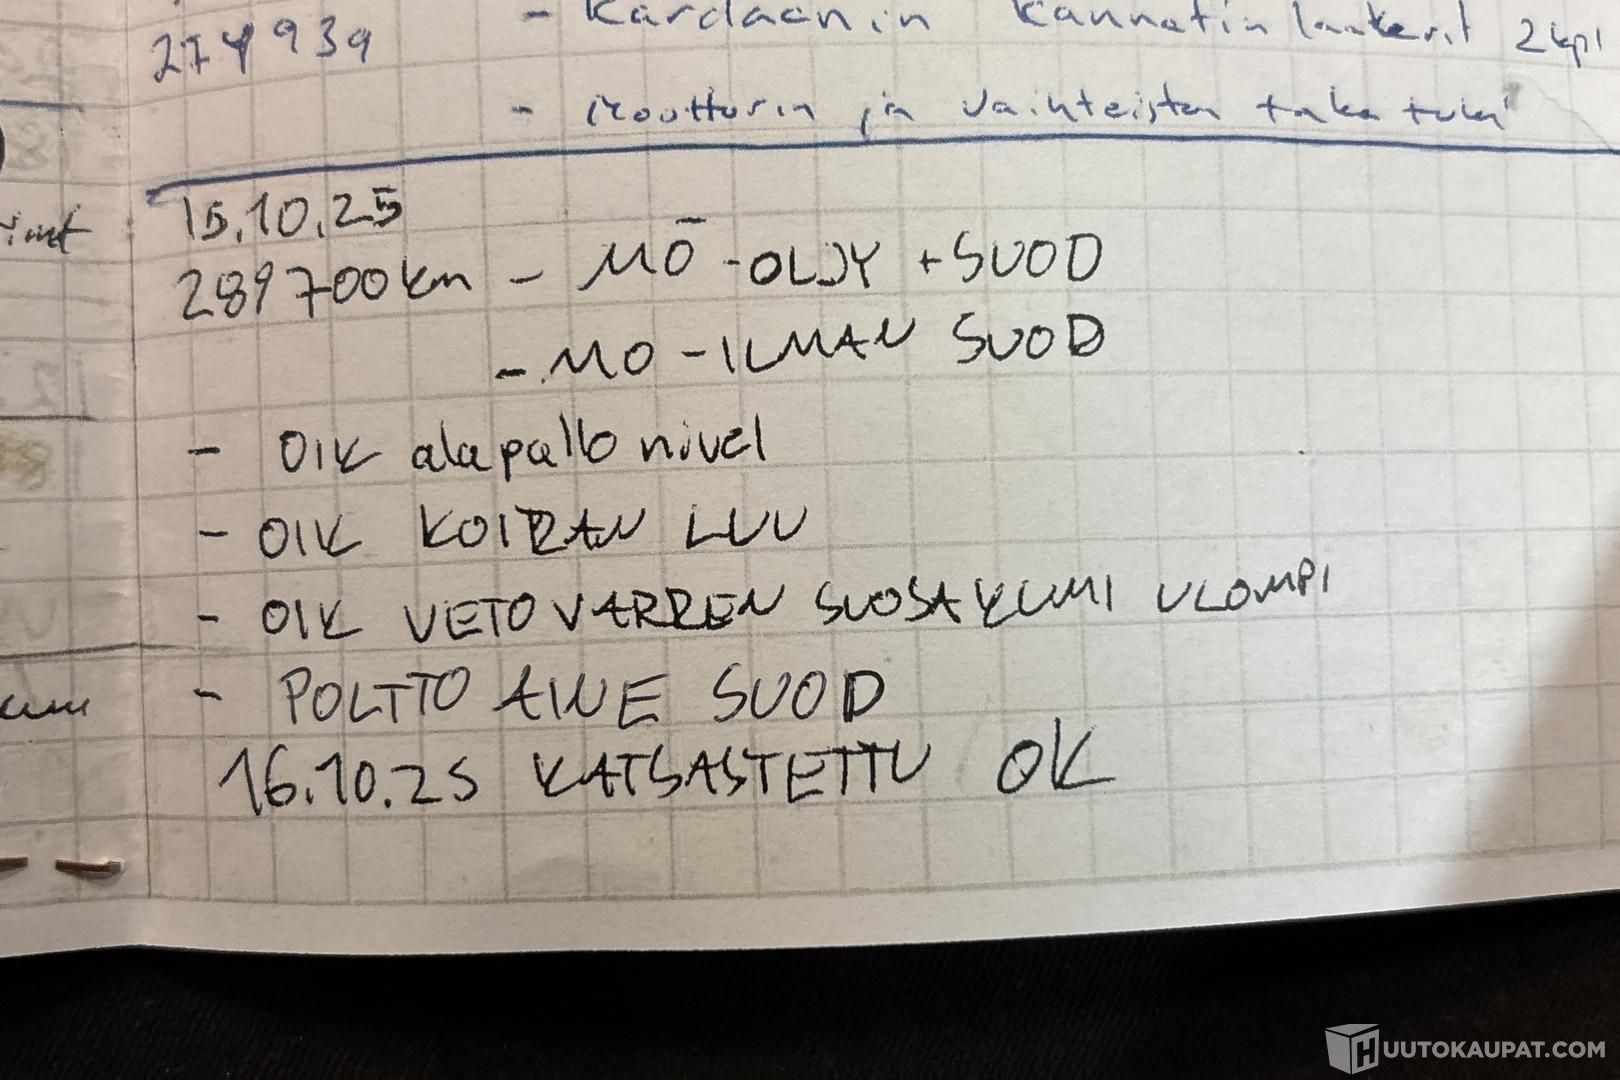 - Kardaanin kannatin laakerit 2 kpl
274939
- Moottorin ja vaihteiston taka tuki
15.10.25
289700km - MÖ -OLJY + SUOD
- MO - ILMAN SUOD
- OIK alapallo nivel
- OIK KOIRAN LUU
- OIK VETOVARREN SUOSAKUMI ULOMPI
- POLTTO AINE SUOD
16.10.25 KATSASTETTU OK
HUUTOKAUPAT.COM